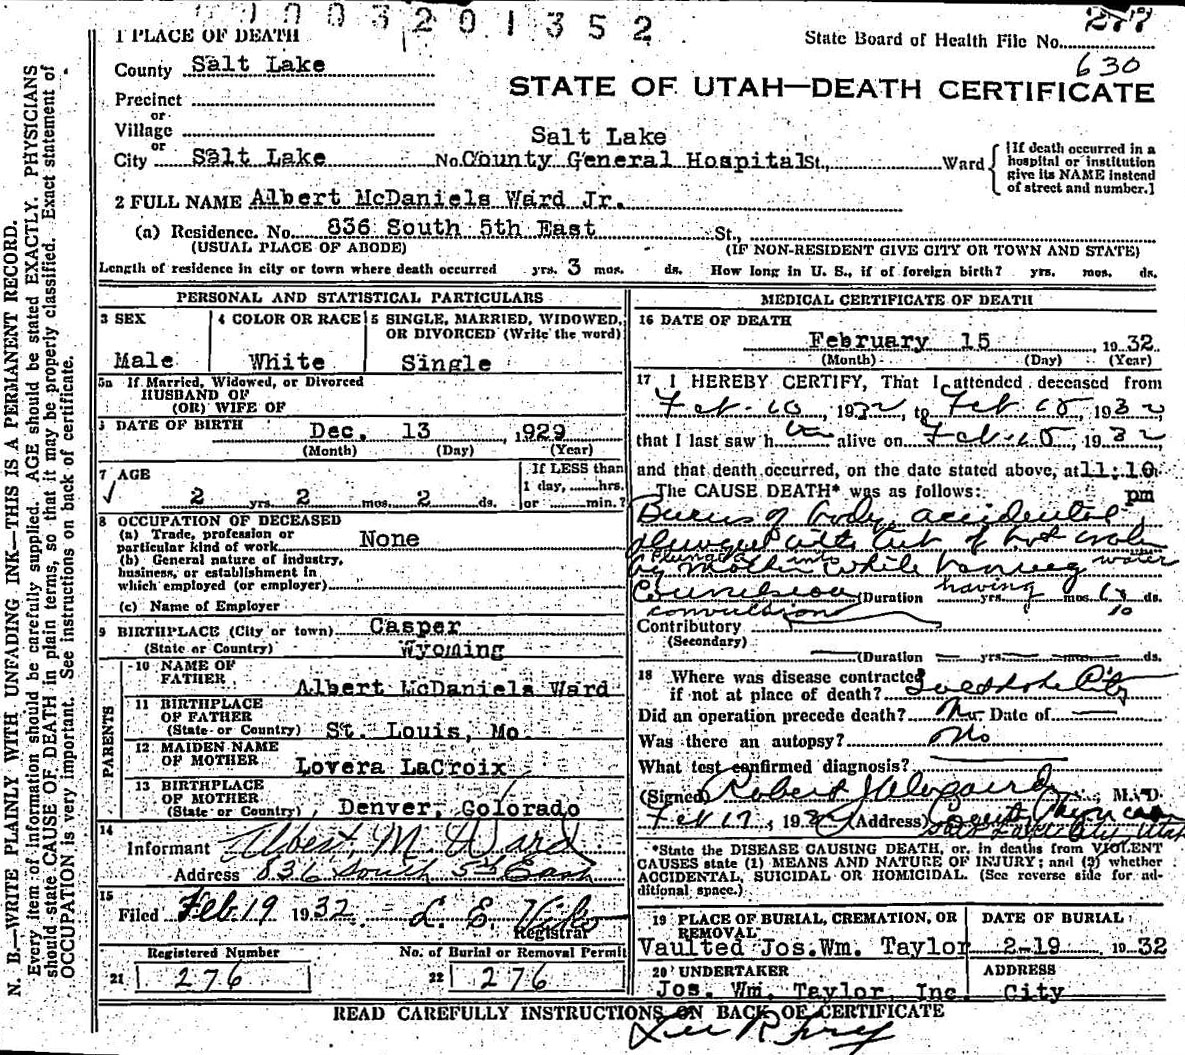 1003201352
277
State Board of Health File No.
630
1 PLACE OF DEATH
County Salt Lake
STATE OF UTAH—DEATH CERTIFICATE
Precinct
or
Village
or
Salt Lake
City Salt Lake No. County General Hospital St., Ward
[If death occurred in a
hospital or institution
give its NAME instend
of street and number.]
2 FULL NAME Albert McDaniels Ward Jr.
(a) Residence. No. 836 South 5th East St.,
(USUAL PLACE OF ABODE) (IF NON-RESIDENT GIVE CITY OR TOWN AND STATE)
Length of residence in city or town where death occurred yrs. 3 mos. ds. How long in U. S., if of foreign birth? yrs. mos. ds.
PERSONAL AND STATISTICAL PARTICULARS
3 SEX
Male
4 COLOR OR RACE
White
5 SINGLE, MARRIED, WIDOWED,
OR DIVORCED (Write the word)
Single
5a If Married, Widowed, or Divorced
HUSBAND OF
(OR) WIFE OF
DATE OF BIRTH Dec. 13, 1929
(Month) (Day) (Year)
7 AGE
2 yrs. 2 mos. 2 ds.
If LESS than
1 day, ......hrs.
or ......min.?
8 OCCUPATION OF DECEASED
(a) Trade, profession or
particular kind of work None
(b) General nature of industry,
business, or establishment in
which employed (or employer)
(c) Name of Employer
9 BIRTHPLACE (City or town) Casper
(State or Country) Wyoming
PARENTS
10 NAME OF
FATHER Albert McDaniels Ward
11 BIRTHPLACE
OF FATHER
(State or Country) St. Louis, Mo.
12 MAIDEN NAME
OF MOTHER Lovera LaCroix
13 BIRTHPLACE
OF MOTHER
(State or Country) Denver, Colorado
14
Informant Albert M. Ward
Address 836 South 5th East
15
Filed Feb. 19 1932 L. E.
Registrar
Registered Number
21 276
No. of Burial or Removal Permit
22 276
MEDICAL CERTIFICATE OF DEATH
16 DATE OF DEATH
February 15 1932
(Month) (Day) (Year)
17 I HEREBY CERTIFY, That I attended deceased from
Feb. 10, 1932, to Feb 15, 1932
that I last saw h alive on Feb. 15, 1932
and that death occurred, on the date stated above, at 11:10
The CAUSE DEATH* was as follows: pm
Burns of body accidental
plunged into tub of hot water
plunged into water
by mother while having
having
Convulsion (Duration yrs. mos. ds.
convulsions 10
Contributory
(Secondary)
(Duration yrs. mos. ds.
18 Where was disease contracted
if not at place of death? Salt Lake City
Did an operation precede death? No Date of
Was there an autopsy? No
What test confirmed diagnosis?
(Signed) Robert , M. D.
Feb 17, 193 (Address)
Salt Lake City, Utah
*State the DISEASE CAUSING DEATH, or, in deaths from VIOLENT
CAUSES state (1) MEANS AND NATURE OF INJURY; and (2) whether
ACCIDENTAL, SUICIDAL OR HOMICIDAL. (See reverse side for ad-
ditional space.)
19 PLACE OF BURIAL, CREMATION, OR
REMOVAL
Vaulted Jos. Wm. Taylor
DATE OF BURIAL
2-19 1932
20 UNDERTAKER
Jos. Wm. Taylor, Inc.
ADDRESS
City
READ CAREFULLY INSTRUCTIONS ON BACK OF CERTIFICATE
N. B.—WRITE PLAINLY WITH UNFADING INK—THIS IS A PERMANENT RECORD.
Every item of information should be carefully supplied. AGE should be stated EXACTLY. PHYSICIANS
should state CAUSE OF DEATH in plain terms, so that it may be properly classified. Exact statement of
OCCUPATION is very important. See instructions on back of certificate.